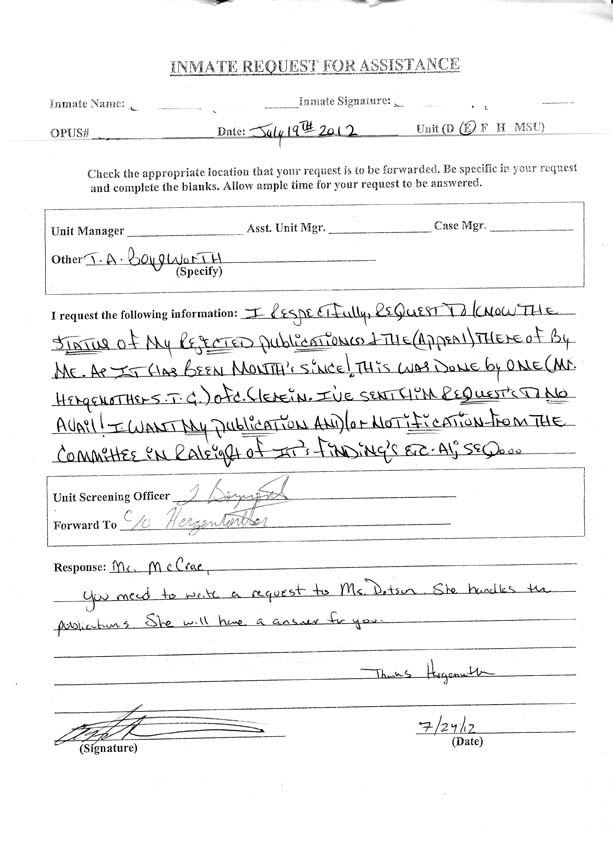 INMATE REQUEST FOR ASSISTANCE
Inmate Name: Inmate Signature:
OPUS# Date: July 19TH 2012 Unit (D E F H MSU)
Check the appropriate location that your request is to be forwarded. Be specific in your request
and complete the blanks. Allow ample time for your request to be answered.
Unit Manager Asst. Unit Mgr. Case Mgr.
Other T.A. Boysworth
(Specify)
I request the following information: I RESPECTFully, REQUEST TO KNOW THE
STATUS of My REJECTED publications & THE (Appeal) THERE of By
ME. AS IT HAS BEEN MONTH'S SINCE! THIS WAS DONE by ONE (Mr.
HERGENOTHERS.T.G.) ofc. HEREIN. I'VE SENT HIM REQUEST'S TO NO
AVAIL! I WANT My publication AND/or NOTIFICATION from THE
COMMITTEE iN RALEIGH of IT'S FINDING'S ETC.
Unit Screening Officer
Forward To C/O
Response: Mr. McCrae,
You need to write a request to Ms. Dotson. She handles the
publications. She will have a answer for you.
Thanks
(Signature) 7/24/12
(Date)